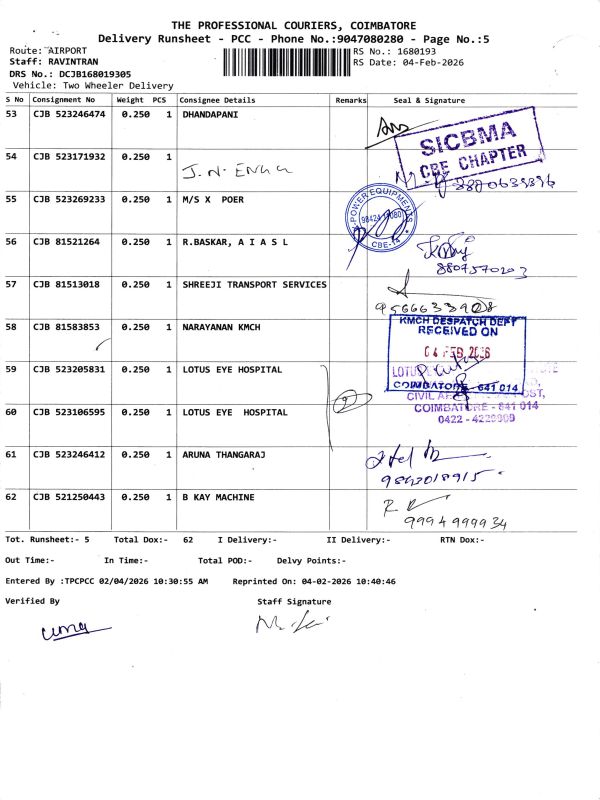 THE PROFESSIONAL COURIERS, COIMBATORE
Delivery Runsheet - PCC - Phone No.:9047080280 - Page No.:5
Route: AIRPORT
Staff: RAVINTRAN
DRS No.: DCJB168019305
Vehicle: Two Wheeler Delivery
RS No.: 1680193
RS Date: 04-Feb-2026
S No Consignment No Weight PCS Consignee Details Remarks Seal & Signature
53 CJB 523246474 0.250 1 DHANDAPANI
SICBMA
CBE CHAPTER
54 CJB 523171932 0.250 1 J.N. ENGG
55 CJB 523269233 0.250 1 M/S X POER
POWER EQUIPMENTS
CBE-14
56 CJB 81521264 0.250 1 R.BASKAR, A I A S L
8807570203
57 CJB 81513018 0.250 1 SHREEJI TRANSPORT SERVICES
9566633908
58 CJB 81583853 0.250 1 NARAYANAN KMCH
KMCH DESPATCH DEPT
RECEIVED ON
04 FEB 2026
COIMBATORE - 641 014
59 CJB 523205831 0.250 1 LOTUS EYE HOSPITAL
LOTUS
CIVIL
COIMBATORE - 641 014
60 CJB 523106595 0.250 1 LOTUS EYE HOSPITAL
2
61 CJB 523246412 0.250 1 ARUNA THANGARAJ
9843018915
62 CJB 521250443 0.250 1 B KAY MACHINE
9994999934
Tot. Runsheet:- 5 Total Dox:- 62 I Delivery:- II Delivery:- RTN Dox:-
Out Time:- In Time:- Total POD:- Delvy Points:-
Entered By :TPCPCC 02/04/2026 10:30:55 AM Reprinted On: 04-02-2026 10:40:46
Verified By Staff Signature
uma